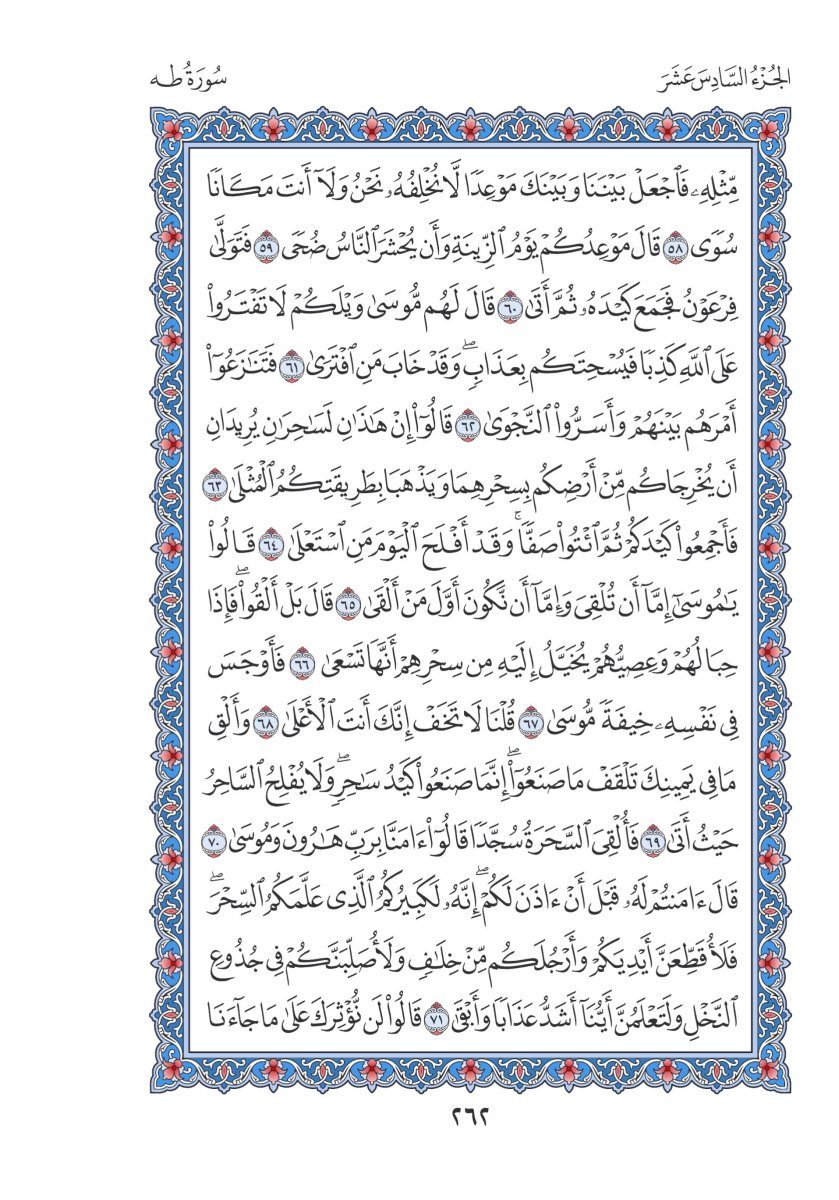 الجُزْءُ السَّادِسَ عَشَرَ
سُورَةُ طه
مِّثۡلِهِۦ فَٱجۡعَلۡ بَيۡنَنَا وَبَيۡنَكَ مَوۡعِدٗا لَّا نُخۡلِفُهُۥ نَحۡنُ وَلَآ أَنتَ مَكَانٗا
سُوٗى ٥٨ قَالَ مَوۡعِدُكُمۡ يَوۡمُ ٱلزِّينَةِ وَأَن يُحۡشَرَ ٱلنَّاسُ ضُحٗى ٥٩ فَتَوَلَّىٰ
فِرۡعَوۡنُ فَجَمَعَ كَيۡدَهُۥ ثُمَّ أَتَىٰ ٦٠ قَالَ لَهُم مُّوسَىٰ وَيۡلَكُمۡ لَا تَفۡتَرُواْ
عَلَى ٱللَّهِ كَذِبٗا فَيُسۡحِتَكُم بِعَذَابٖۖ وَقَدۡ خَابَ مَنِ ٱفۡتَرَىٰ ٦١ فَتَنَٰزَعُوٓاْ
أَمۡرَهُم بَيۡنَهُمۡ وَأَسَرُّواْ ٱلنَّجۡوَىٰ ٦٢ قَالُوٓاْ إِنۡ هَٰذَٰنِ لَسَٰحِرَٰنِ يُرِيدَانِ
أَن يُخۡرِجَاكُم مِّنۡ أَرۡضِكُم بِسِحۡرِهِمَا وَيَذۡهَبَا بِطَرِيقَتِكُمُ ٱلۡمُثۡلَىٰ ٦٣
فَأَجۡمِعُواْ كَيۡدَكُمۡ ثُمَّ ٱئۡتُواْ صَفّٗاۚ وَقَدۡ أَفۡلَحَ ٱلۡيَوۡمَ مَنِ ٱسۡتَعۡلَىٰ ٦٤ قَالُواْ
يَٰمُوسَىٰٓ إِمَّآ أَن تُلۡقِيَ وَإِمَّآ أَن نَّكُونَ أَوَّلَ مَنۡ أَلۡقَىٰ ٦٥ قَالَ بَلۡ أَلۡقُواْۖ فَإِذَا
حِبَالُهُمۡ وَعِصِيُّهُمۡ يُخَيَّلُ إِلَيۡهِ مِن سِحۡرِهِمۡ أَنَّهَا تَسۡعَىٰ ٦٦ فَأَوۡجَسَ
فِي نَفۡسِهِۦ خِيفَةٗ مُّوسَىٰ ٦٧ قُلۡنَا لَا تَخَفۡ إِنَّكَ أَنتَ ٱلۡأَعۡلَىٰ ٦٨ وَأَلۡقِ
مَا فِي يَمِينِكَ تَلۡقَفۡ مَا صَنَعُوٓاْۖ إِنَّمَا صَنَعُواْ كَيۡدُ سَٰحِرٖۖ وَلَا يُفۡلِحُ ٱلسَّاحِرُ
حَيۡثُ أَتَىٰ ٦٩ فَأُلۡقِيَ ٱلسَّحَرَةُ سُجَّدٗا قَالُوٓاْ ءَامَنَّا بِرَبِّ هَٰرُونَ وَمُوسَىٰ ٧٠
قَالَ ءَامَنتُمۡ لَهُۥ قَبۡلَ أَنۡ ءَاذَنَ لَكُمۡۖ إِنَّهُۥ لَكَبِيرُكُمُ ٱلَّذِي عَلَّمَكُمُ ٱلسِّحۡرَۖ
فَلَأُقَطِّعَنَّ أَيۡدِيَكُمۡ وَأَرۡجُلَكُم مِّنۡ خِلَٰفٖ وَلَأُصَلِّبَنَّكُمۡ فِي جُذُوعِ
ٱلنَّخۡلِ وَلَتَعۡلَمُنَّ أَيُّنَآ أَشَدُّ عَذَابٗا وَأَبۡقَىٰ ٧١ قَالُواْ لَن نُّؤۡثِرَكَ عَلَىٰ مَا جَآءَنَا
٢٦٢